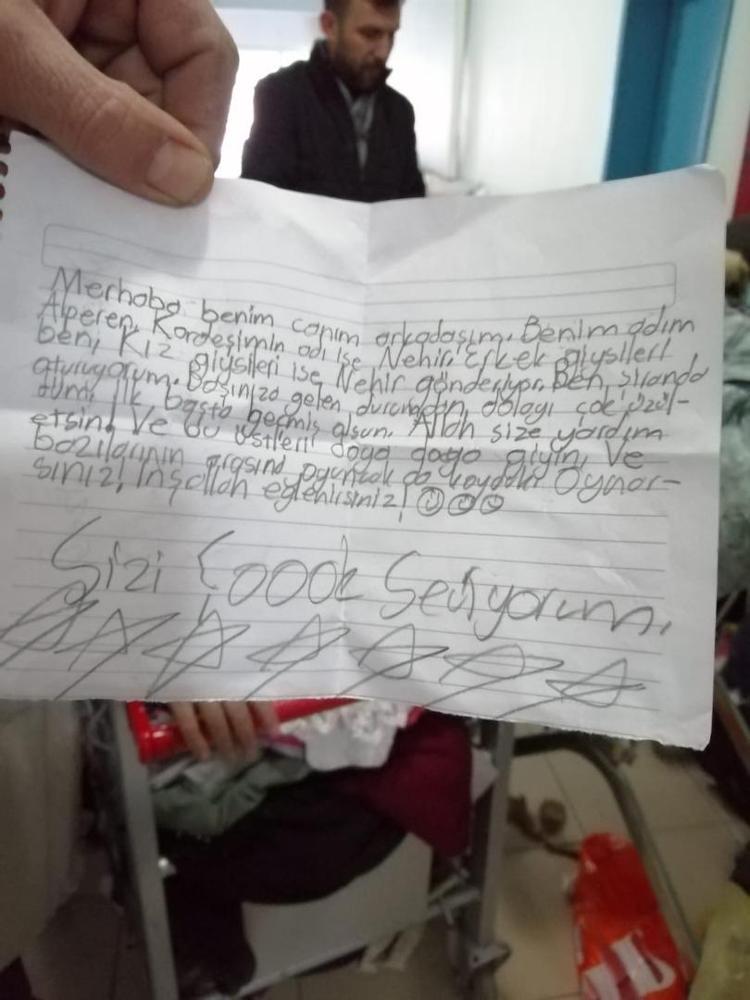 Merhaba benim canım arkadaşım. Benim adım
Alperen, Kardeşimin adı ise Nehir. Erkek giysileri
ben, Kız giysileri ise Nehir gönderiyor. Ben, Şıranda
oturuyorum. Başınıza gelen durumdan, dolayı çok üzül-
düm. İlk başta geçmiş olsun. Allah size yardım
etsin! Ve bu üstleri doya doya giyin, Ve
bazılarının arasına oyuncak da koyduk. Oynar-
sınız! İnşallah eğlenirsiniz!
Sizi Çoook Seviyorum.